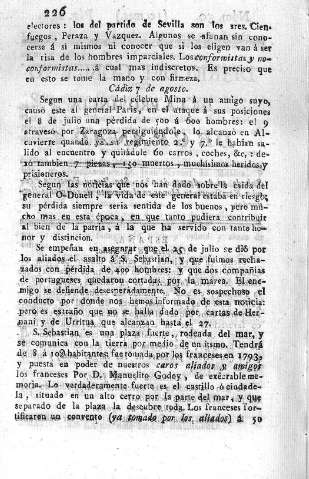 226
electores: los del partido de Sevilla son los sres. Cien-
fuegos, Peraza y Vazquez. Algunos se afanan sin cono-
cerse á si mismos ni conocer que si los eligen van á ser
la risa de los hombres imparciales. Los conformistas y no-
conformistas..., á cual mas indiscretos. Es preciso que
en esto se tome la mano y con firmeza.
Cádiz 7 de agosto.
Segun una carta del célebre Mina á un amigo suyo,
causó este al general Paris, en el ataque á sus posiciones
el 8 de julio una pérdida de 500 á 600 hombres: el 9
atravesó por Zaragoza persiguiéndole, lo alcanzó en Al-
cavierte quando ya su regimiento 2.º y 7.º le habian sa-
lido al encuentro y quitádole 60 carros, coches, &c.: de-
xó tambien 7 piezas, 150 muertos, muchísimos heridos y
prisioneros.
Segun las noticias que nos han dado sobre la caida del
general O-Donell, la vida de este general estaba en riesgo;
su pérdida siempre seria sentida de los buenos, pero mu-
cho mas en esta época, en que tanto pudiera contribuir
al bien de la patria, á la que ha servido con tanto ho-
nor y distincion.
Se empeñan en asegurar que el 25 de julio se dió por
los aliados el asalto á S. Sebastian, y que fuimos recha-
zados con pérdida de 400 hombres: y que dos compañias
de portugueses quedaron cortadas por la marea. El ene-
migo se defiende desesperadamente. No es sospechoso el
conducto por donde nos hemos informado de esta noticia:
pero es estraño que no se halla dado por cartas de Her-
nani y de Urritua que alcanzan hasta el 27.
S. Sebastian es una plaza fuerte, rodeada del mar, y
se comunica con la tierra por medio de un istmo. Tendrá
de 8 á 10® habitantes: fue tomada por los franceses en 1793,
y puesta en poder de nuestros caros aliados y amigos
los franceses Por D. Manuelito Godoy, de execrable me-
moria. Lo verdaderamente fuerte es el castillo ó ciudade-
la, situado en un alto cerro por la parte del mar, y que
separado de la plaza la descubre toda. Los franceses for-
tificaron un convento (ya tomado por los aliados) á 50